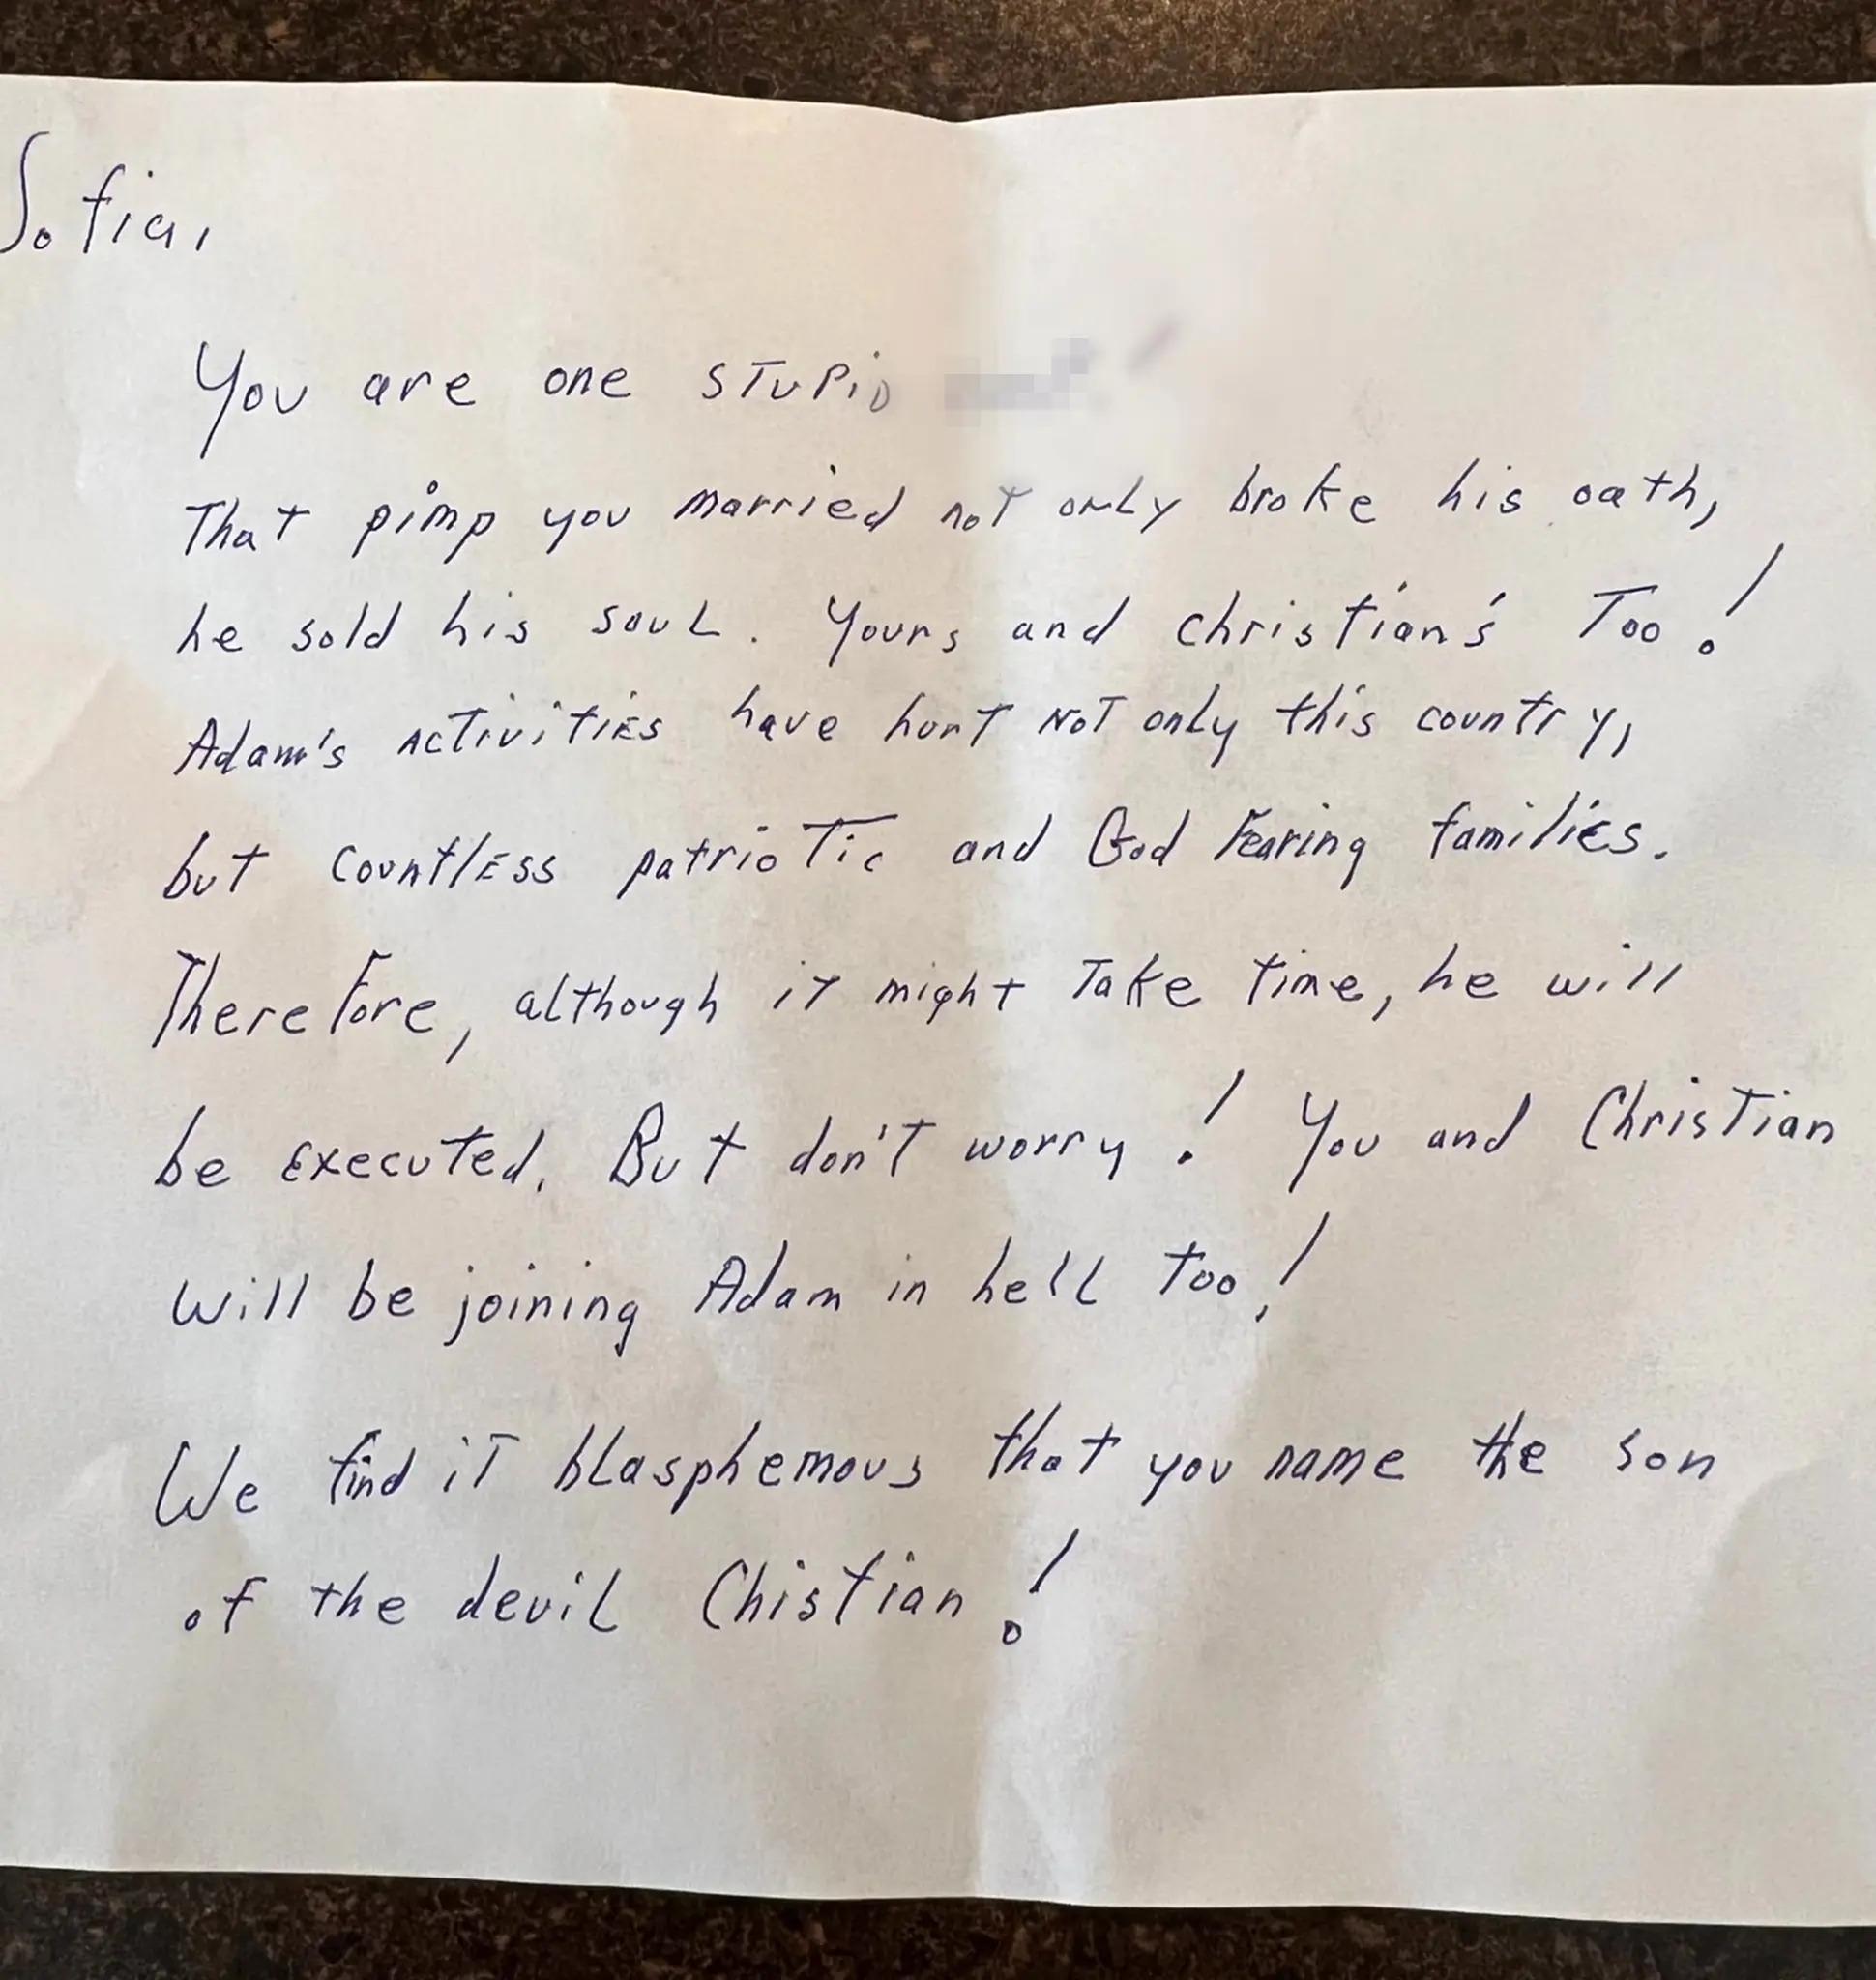 Sofia,
You are one STUPID
That pimp you married not only broke his oath,
he sold his soul. Yours and christian's Too!
Adam's activities have hurt not only this country,
but countless patriotic and God Fearing families.
Therefore, although it might take time, he will
be executed. But don't worry! You and Christian
will be joining Adam in hell too!
We find it blasphemous that you name the son
of the devil Chistian!